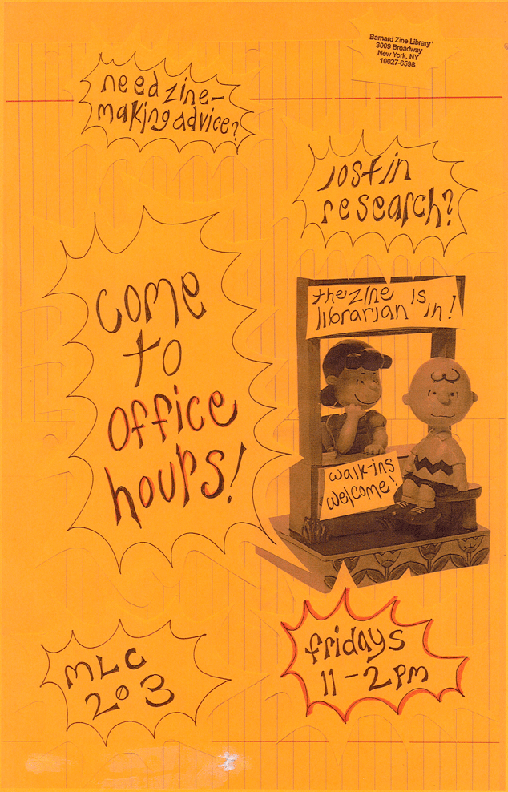 Barnard Zine Library
3009 Broadway
New York, NY
10027-6598
need zine-
making advice?
lost in
research?
come
to
office
hours!
the zine is
librarian in!
walk-ins
welcome!
MLC
203
fridays
11-2pm